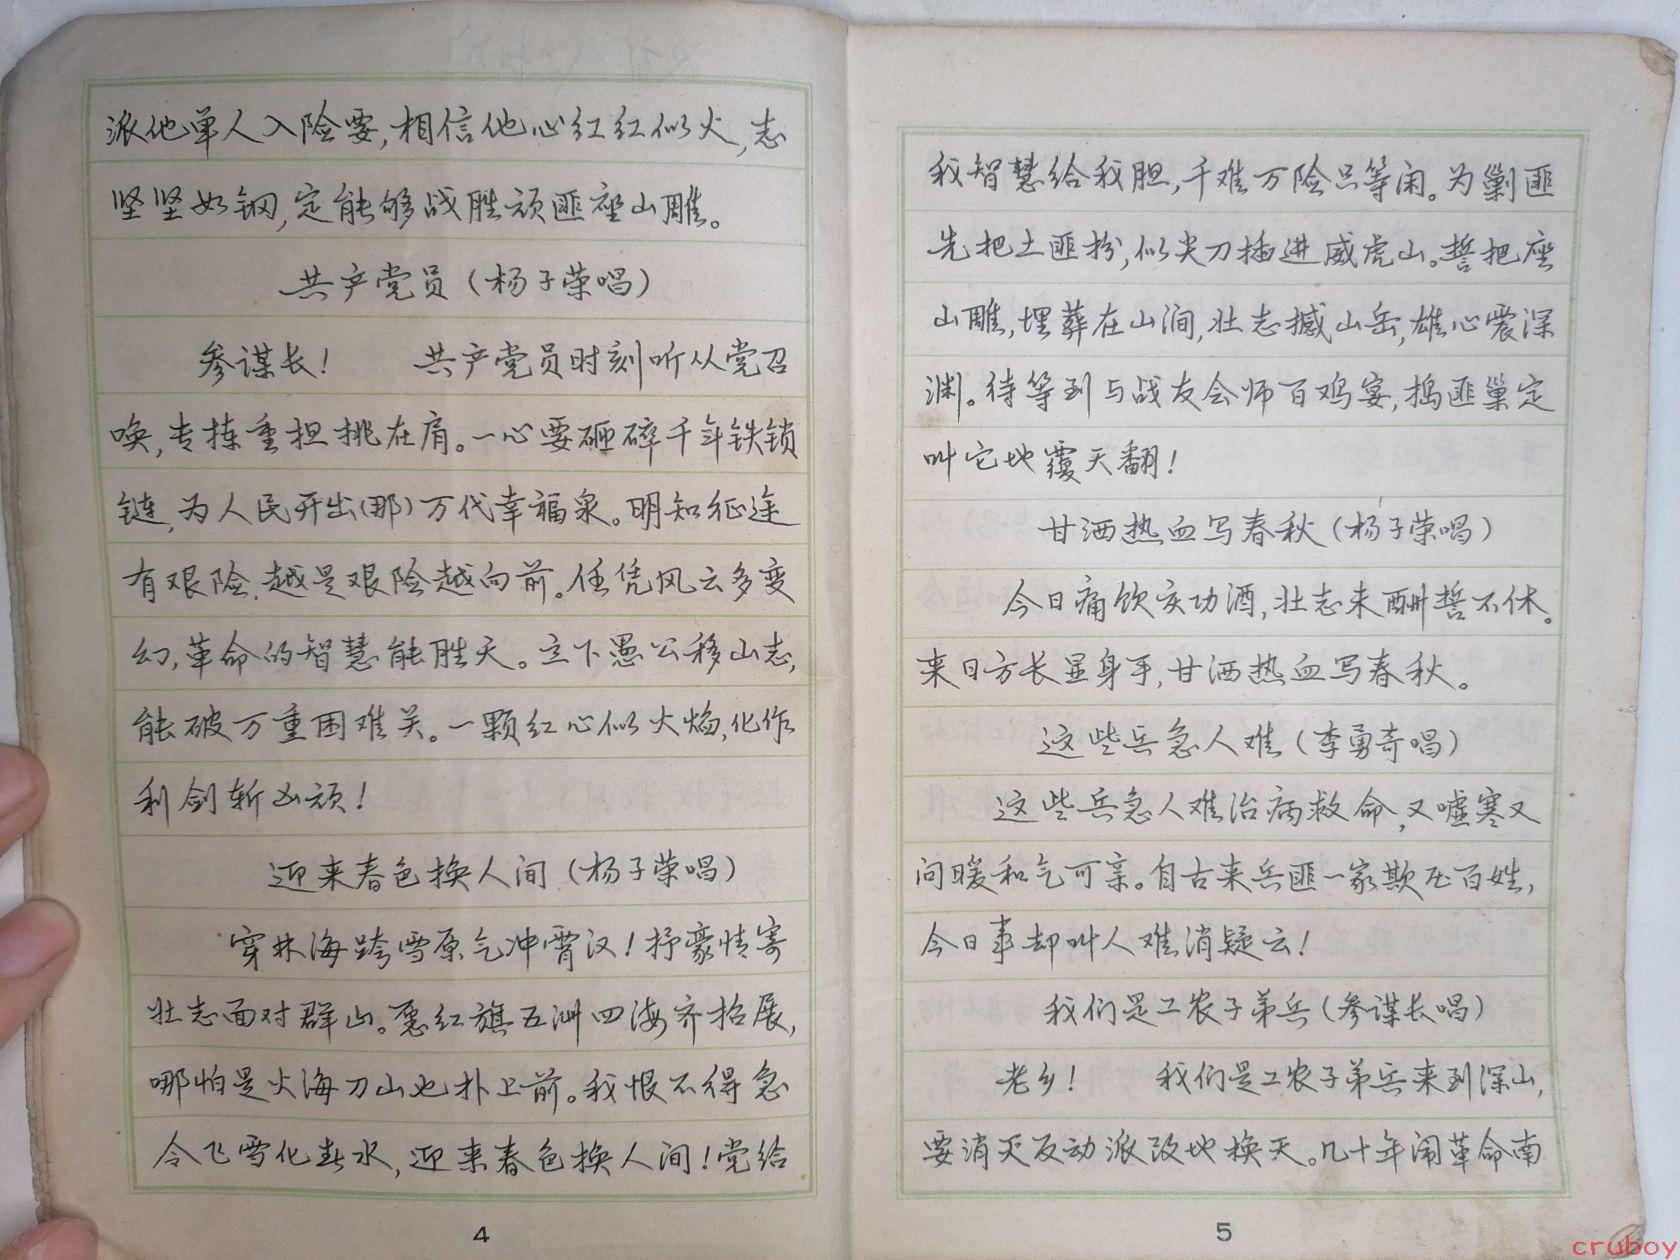 派他单人入险要,相信他心红红似火,志
坚坚如钢,定能够战胜顽匪座山雕。
共产党员(杨子荣唱)
参谋长! 共产党员时刻听从党召
唤,专拣重担挑在肩。一心要砸碎千年铁锁
链,为人民开出(那)万代幸福泉。明知征途
有艰险,越是艰险越向前。任凭风云多变
幻,革命的智慧能胜天。立下愚公移山志,
能破万重困难关。一颗红心似火焰,化作
利剑斩凶顽!
迎来春色换人间(杨子荣唱)
穿林海跨雪原气冲霄汉!抒豪情寄
壮志面对群山。愿红旗五洲四海齐招展,
哪怕是火海刀山也扑上前。我恨不得急
令飞雪化春水,迎来春色换人间!党给
4
我智慧给我胆,千难万险只等闲。为剿匪
先把土匪扮,似尖刀插进威虎山。誓把座
山雕,埋葬在山涧,壮志撼山岳,雄心震深
渊。待等到与战友会师百鸡宴,捣匪巢定
叫它地覆天翻!
甘洒热血写春秋(杨子荣唱)
今日痛饮庆功酒,壮志未酬誓不休。
来日方长显身手,甘洒热血写春秋。
这些兵急人难(李勇奇唱)
这些兵急人难治病救命,又嘘寒又
问暖和气可亲。自古来兵匪一家欺压百姓,
今日事却叫人难消疑云!
我们是工农子弟兵(参谋长唱)
老乡! 我们是工农子弟兵来到深山,
要消灭反动派改地换天。几十年闹革命南
5
cruboy